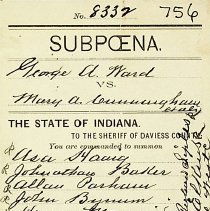 No. 8332 756
SUBPŒNA.
George A. Ward
VS.
Mary A. Cunningham
et al
THE STATE OF INDIANA.
TO THE SHERIFF OF DAVIESS COUNTY:
You are commanded to summon
Asa Haag
Johnathan Baker
Allan Parham
John Bynum